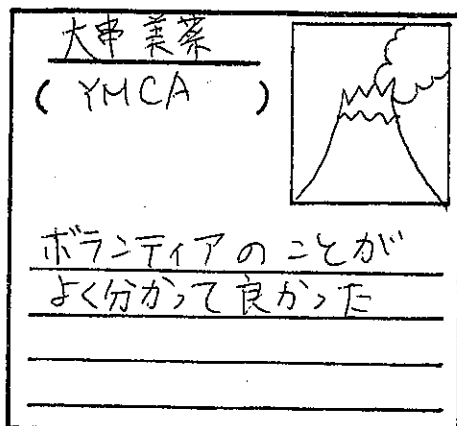 大串美菜
( YMCA )
ボランティアのことが
よく分かって良かった